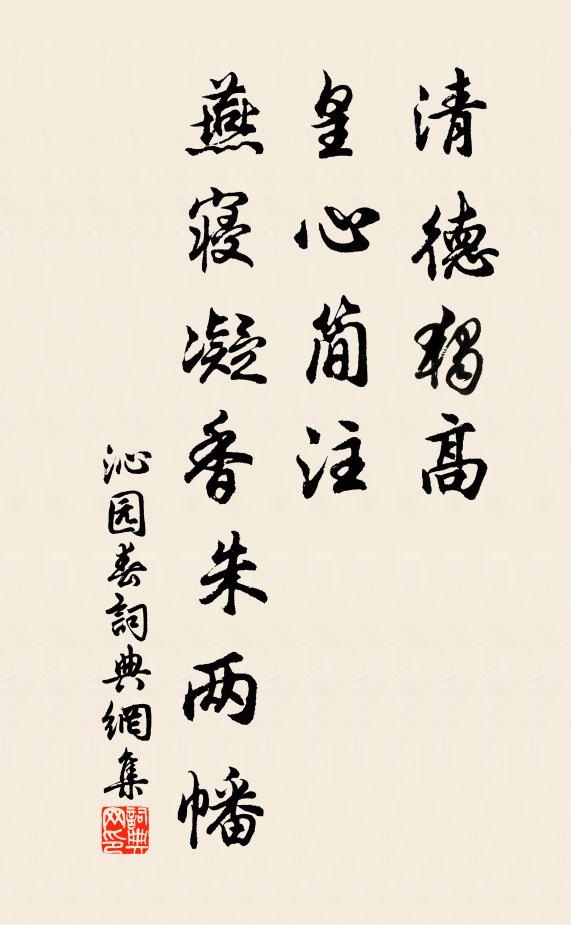 清德獨高
皇心简注
燕寝凝香朱两幡
沁园春詞典網集
詞典网印